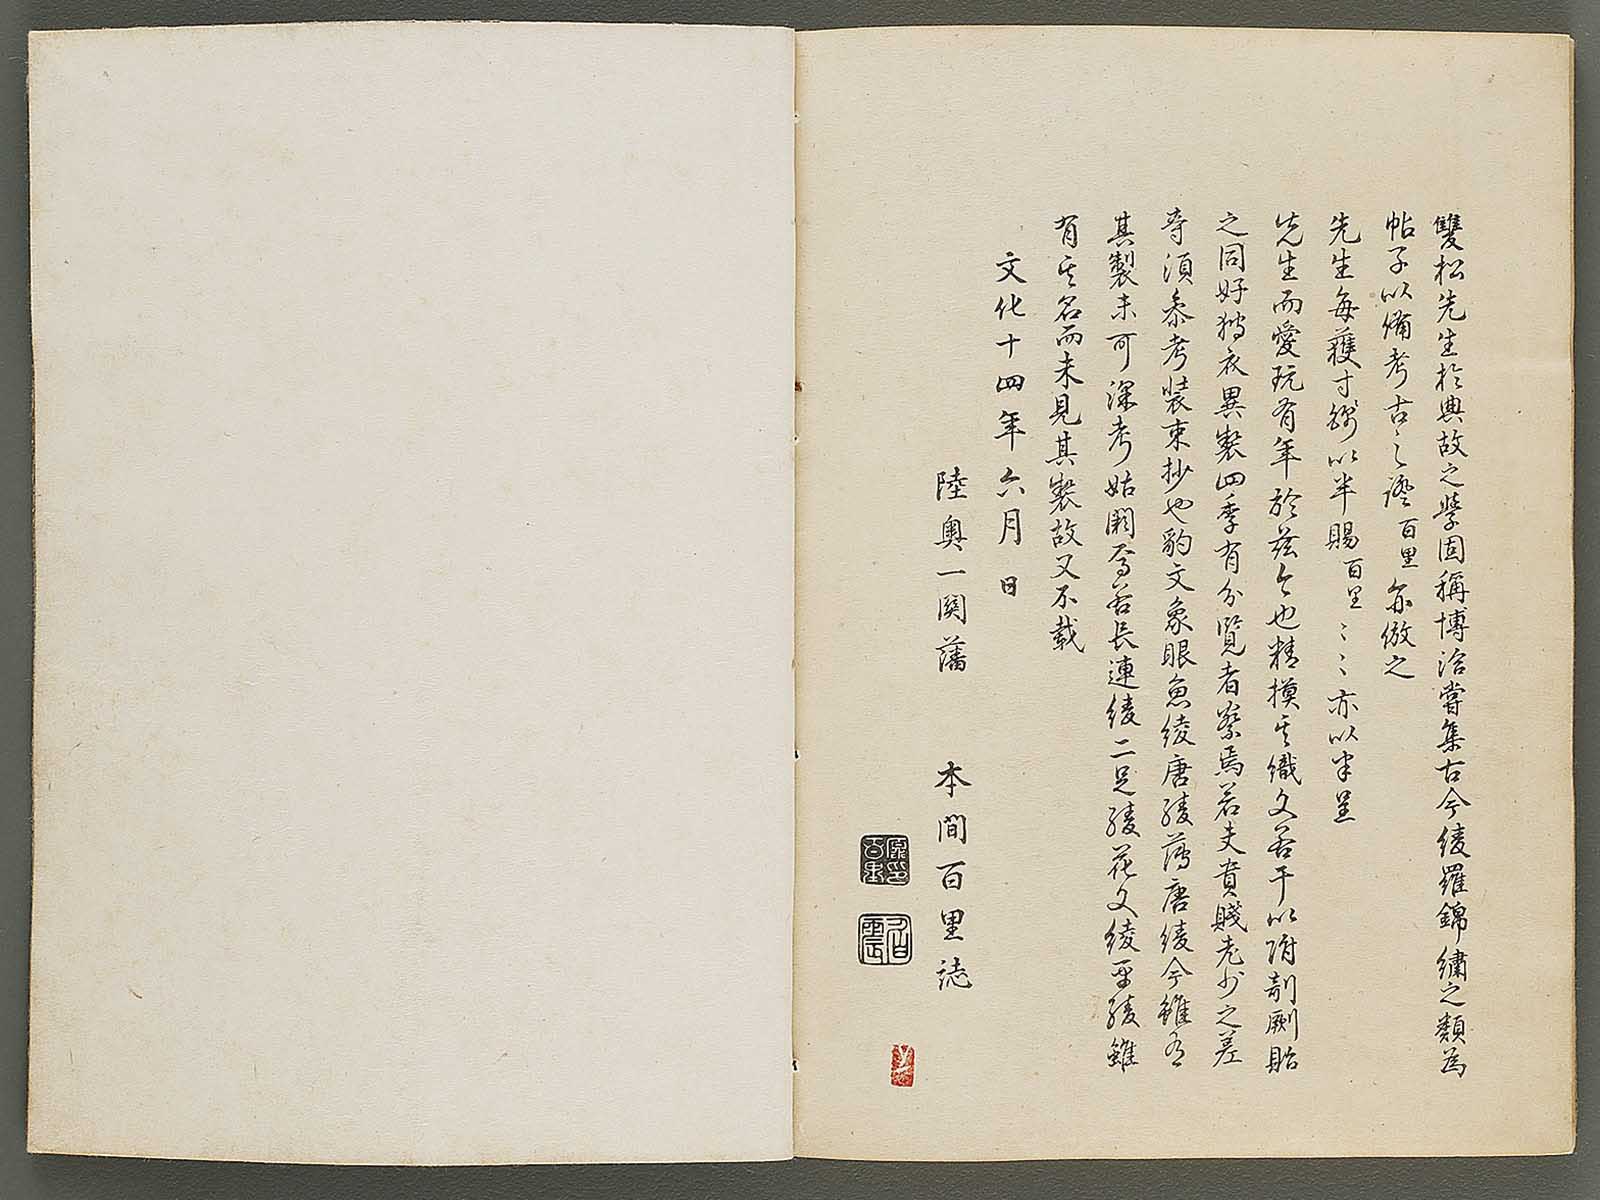 雙松先生於典故之學固稱博洽嘗集古今綾羅錦繡之類為
帖子以備考古之證百里亦倣之
先生每獲寸錦以半賜百里〻〻亦以半呈
先生而愛玩有年於茲今也精摸其織文若干以附剞劂貽
之同好狩衣異製四季有分覽者察焉若夫貴賤老少之差
等須參考裝束抄也豹文象眼魚綾唐綾薄唐綾今雖有
其製未可深考姑闕焉若長連綾二足綾花文綾平綾雖
有其名而未見其製故又不載
文化十四年六月日
陸奧一關藩 本間百里誌